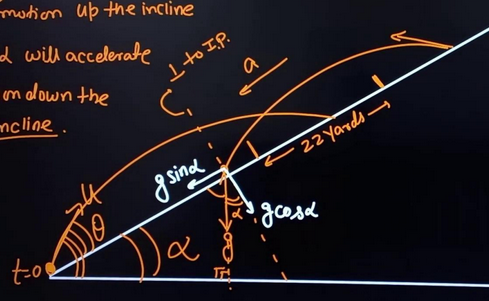 motion up the incline
d will accelerate
on down the
ncline.
⊥ to I.P.
a
22 yards
g sinα
g cosα
α
g
u
θ
α
t=0